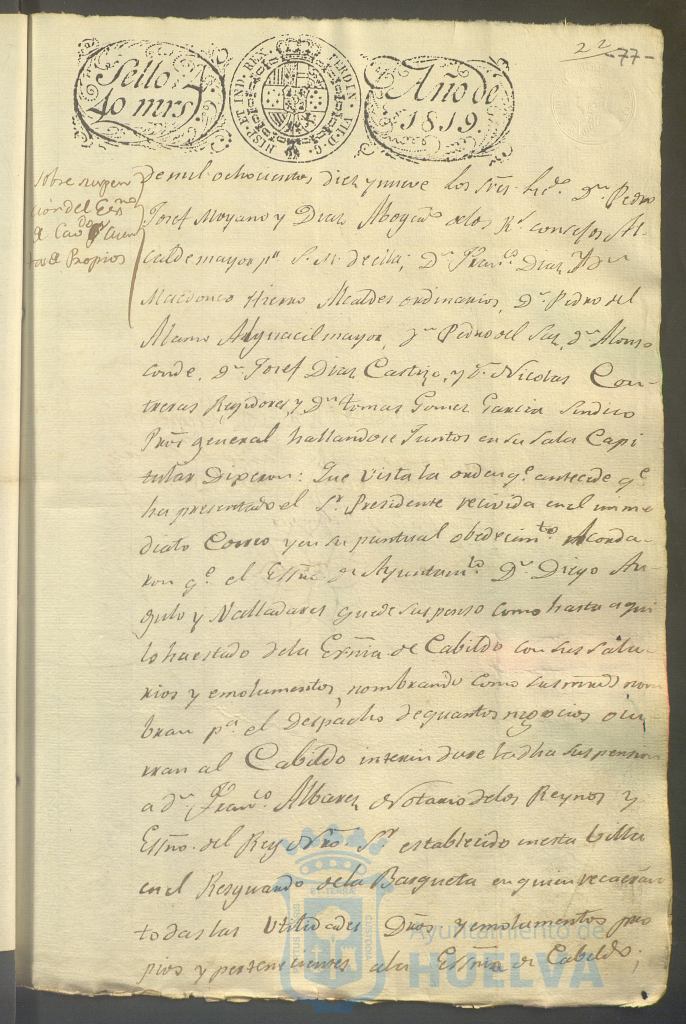 22 -77-
Sello
40 mrs
HISP. ET IND. REX. FERDIN. VII. D. G.
Año de
1819.
sobre suspen
cion del Essno
de Cavdo y cuen
tas de Propios
de mil ochocientos diez y nueve los Sres. Lido. Dn. Pedro
Josef Moyano y Diaz Abogado de los Rs. concejos Al-
calde mayor pr. S. M. de ella; Dn. Franco. Diaz y Dn
Macdonco Hierro Alcaldes ordinarios, Dn. Pedro del
Alamo Alguacil mayor, Dn Pedro del Saz, Dn Alonso
conde, Dn. Josef Diaz Castizo, y Dn. Nicolas Con-
treras Rejidores, y Dn tomas Gomez Garcia Sindico
Pror. general hallandose Juntos en su Sala Capi
tular Dixeron: Que vista la orden qe. antecede qe
ha presentado el Sr. Presidente recivida en el inme
diato Correo y en su puntual obedecimto. Acorda-
ron qe. el Essno de Ayuntamto. Dn. Diego An-
gulo y Valladares quede suspenso como hasta aqui
lo ha estado de la Essnia de Cabildo con sus sala-
rios y emolumentos, nombrando como sus mrds nom
bran pa. el Despacho de quantos negocios ocu-
rran al Cabildo interin dure la dha suspension
a Dn. Franco. Albarez Notario de los Reynos y
Essno. del Rey Nro. Sr. establecido en esta Villa
en el Resguardo de la Barqueta en quien recaeran
todas las Utilidades Dros. y emolumentos pro
pios y pertenecientes a la Essnia de Cabildo;
Ayuntamiento de
HUELVA